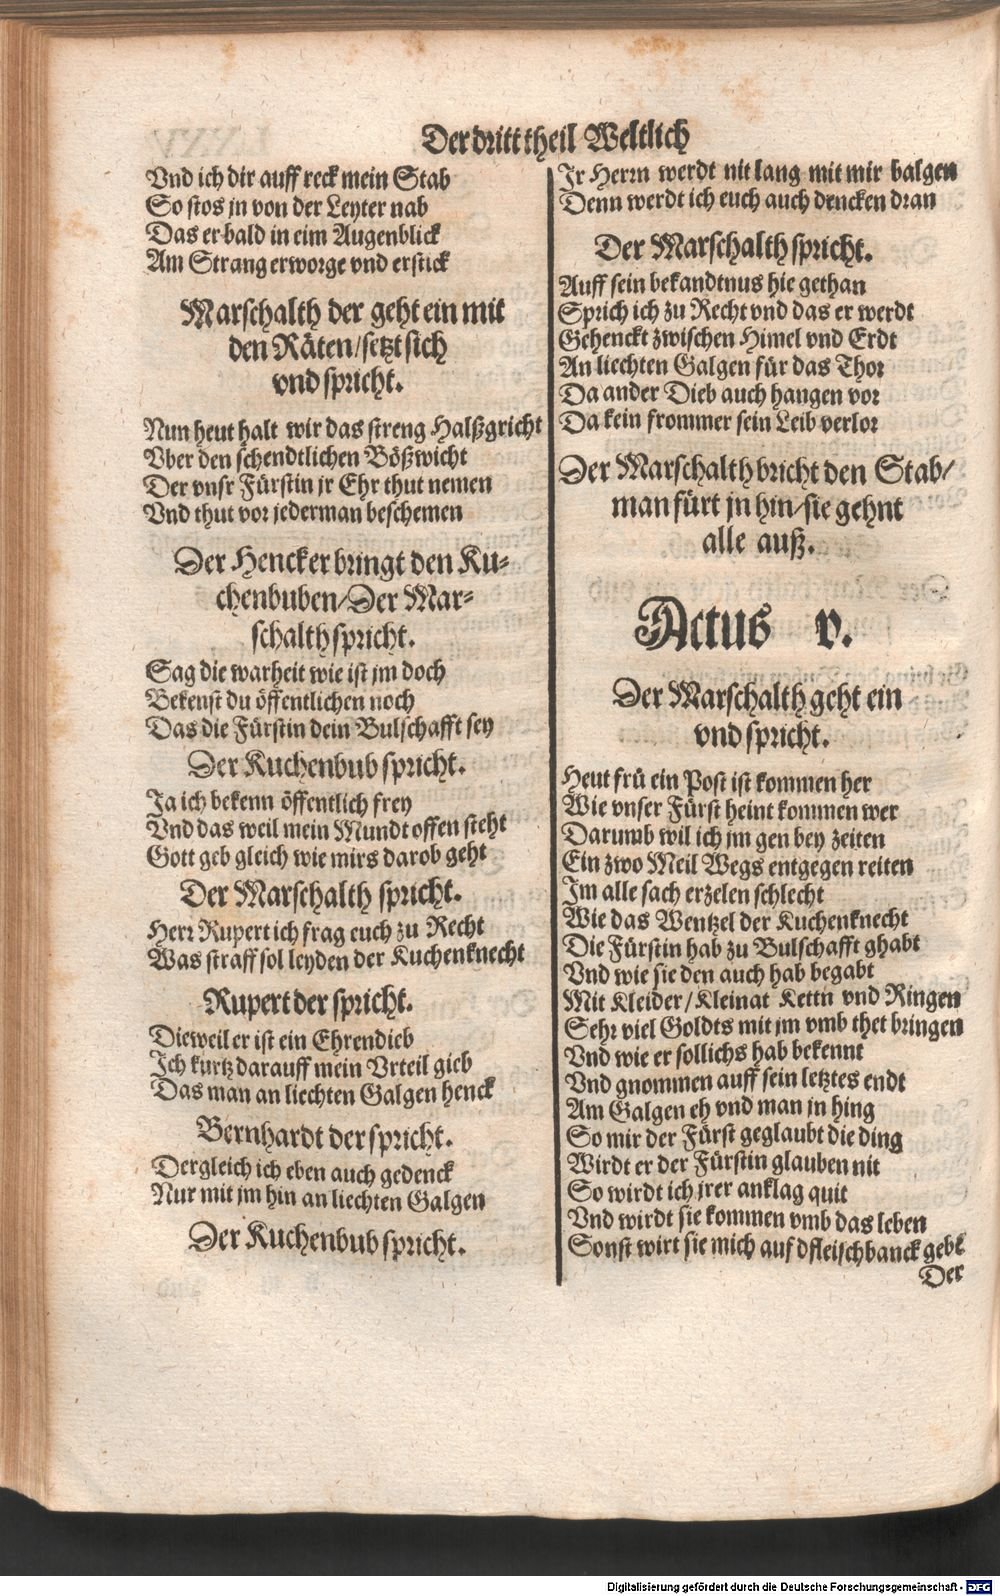 Der dritt theil Weltlich
Vnd ich dir auff reck mein Stab
So stos jn von der Leyter nab
Das er bald in eim Augenblick
Am Strang erworge vnd erstick
Marschalth der geht ein mit
den Räten/setzt sich
vnd spricht.
Nun heut halt wir das streng Halßgricht
Vber den schendtlichen Bößwicht
Der vnsr Fürstin jr Ehr thut nemen
Vnd thut vor jederman beschemen
Der Hencker bringt den Ku-
chenbuben/Der Mar-
schalth spricht.
Sag die warheit wie ist jm doch
Bekenst du öffentlichen noch
Das die Fürstin dein Bulschafft sey
Der Kuchenbub spricht.
Ja ich bekenn öffentlich frey
Vnd das weil mein Mundt offen steht
Gott geb gleich wie mirs darob geht
Der Marschalth spricht.
Herr Rupert ich frag euch zu Recht
Was straff sol leyden der Kuchenknecht
Rupert der spricht.
Dieweil er ist ein Ehrendieb
Ich kurtz darauff mein Vrteil gieb
Das man an liechten Galgen henck
Bernhardt der spricht.
Dergleich ich eben auch gedenck
Nur mit jm hin an liechten Galgen
Der Kuchenbub spricht.
Jr Herrn werdt nit lang mit mir balgen
Denn werdt ich euch auch drucken dran
Der Marschalth spricht.
Auff sein bekandtnus hie gethan
Sprich ich zu Recht vnd das er werdt
Gehenckt zwischen Himel vnd Erdt
An liechten Galgen für das Thor
Da ander Dieb auch hangen vor
Da kein frommer sein Leib verlor
Der Marschalth bricht den Stab/
man fürt jn hin/sie gehnt
alle auß.
Actus v.
Der Marschalth geht ein
vnd spricht.
Heut frü ein Post ist kommen her
Wie vnser Fürst heint kommen wer
Darumb wil ich jm gen bey zeiten
Ein zwo Meil Wegs entgegen reiten
Im alle sach erzelen schlecht
Wie das Wentzel der Kuchenknecht
Die Fürstin hab zu Bulschafft ghabt
Vnd wie sie den auch hab begabt
Mit Kleider/Kleinat Kettn vnd Ringen
Sehr viel Goldts mit jm vmb thet bringen
Vnd wie er sollichs hab bekennt
Vnd gnommen auff sein letztes endt
Am Galgen eh vnd man jn hing
So mir der Fürst geglaubt die ding
Wirdt er der Fürstin glauben nit
So wirdt ich jrer anklag quit
Vnd wirdt sie kommen vmb das leben
Sonst wirt sie mich auf dfleischbanck gebē
Der
Digitalisierung gefördert durch die Deutsche Forschungsgemeinschaft - DFG